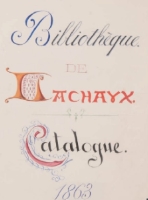 Billiothèque.
DE
LACHAUX.
Catalogue.
1863